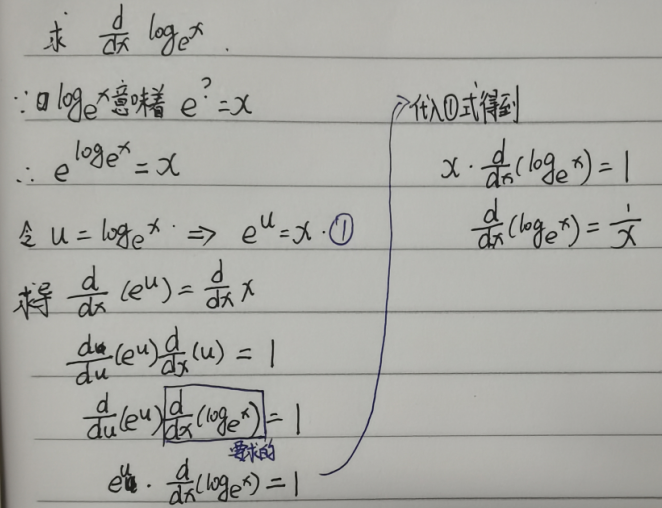 求 d/dx logₑx.
∵ logₑx意味着 e^? = x
∴ e^(logₑx) = x
令 u = logₑx ⇒ e^u = x · ①
求导 d/dx (e^u) = d/dx x
d/du (e^u) d/dx (u) = 1
d/du (e^u) d/dx (logₑx) = 1
要求的
e^u · d/dx (logₑx) = 1
代入①式得到
x · d/dx (logₑx) = 1
d/dx (logₑx) = 1/x